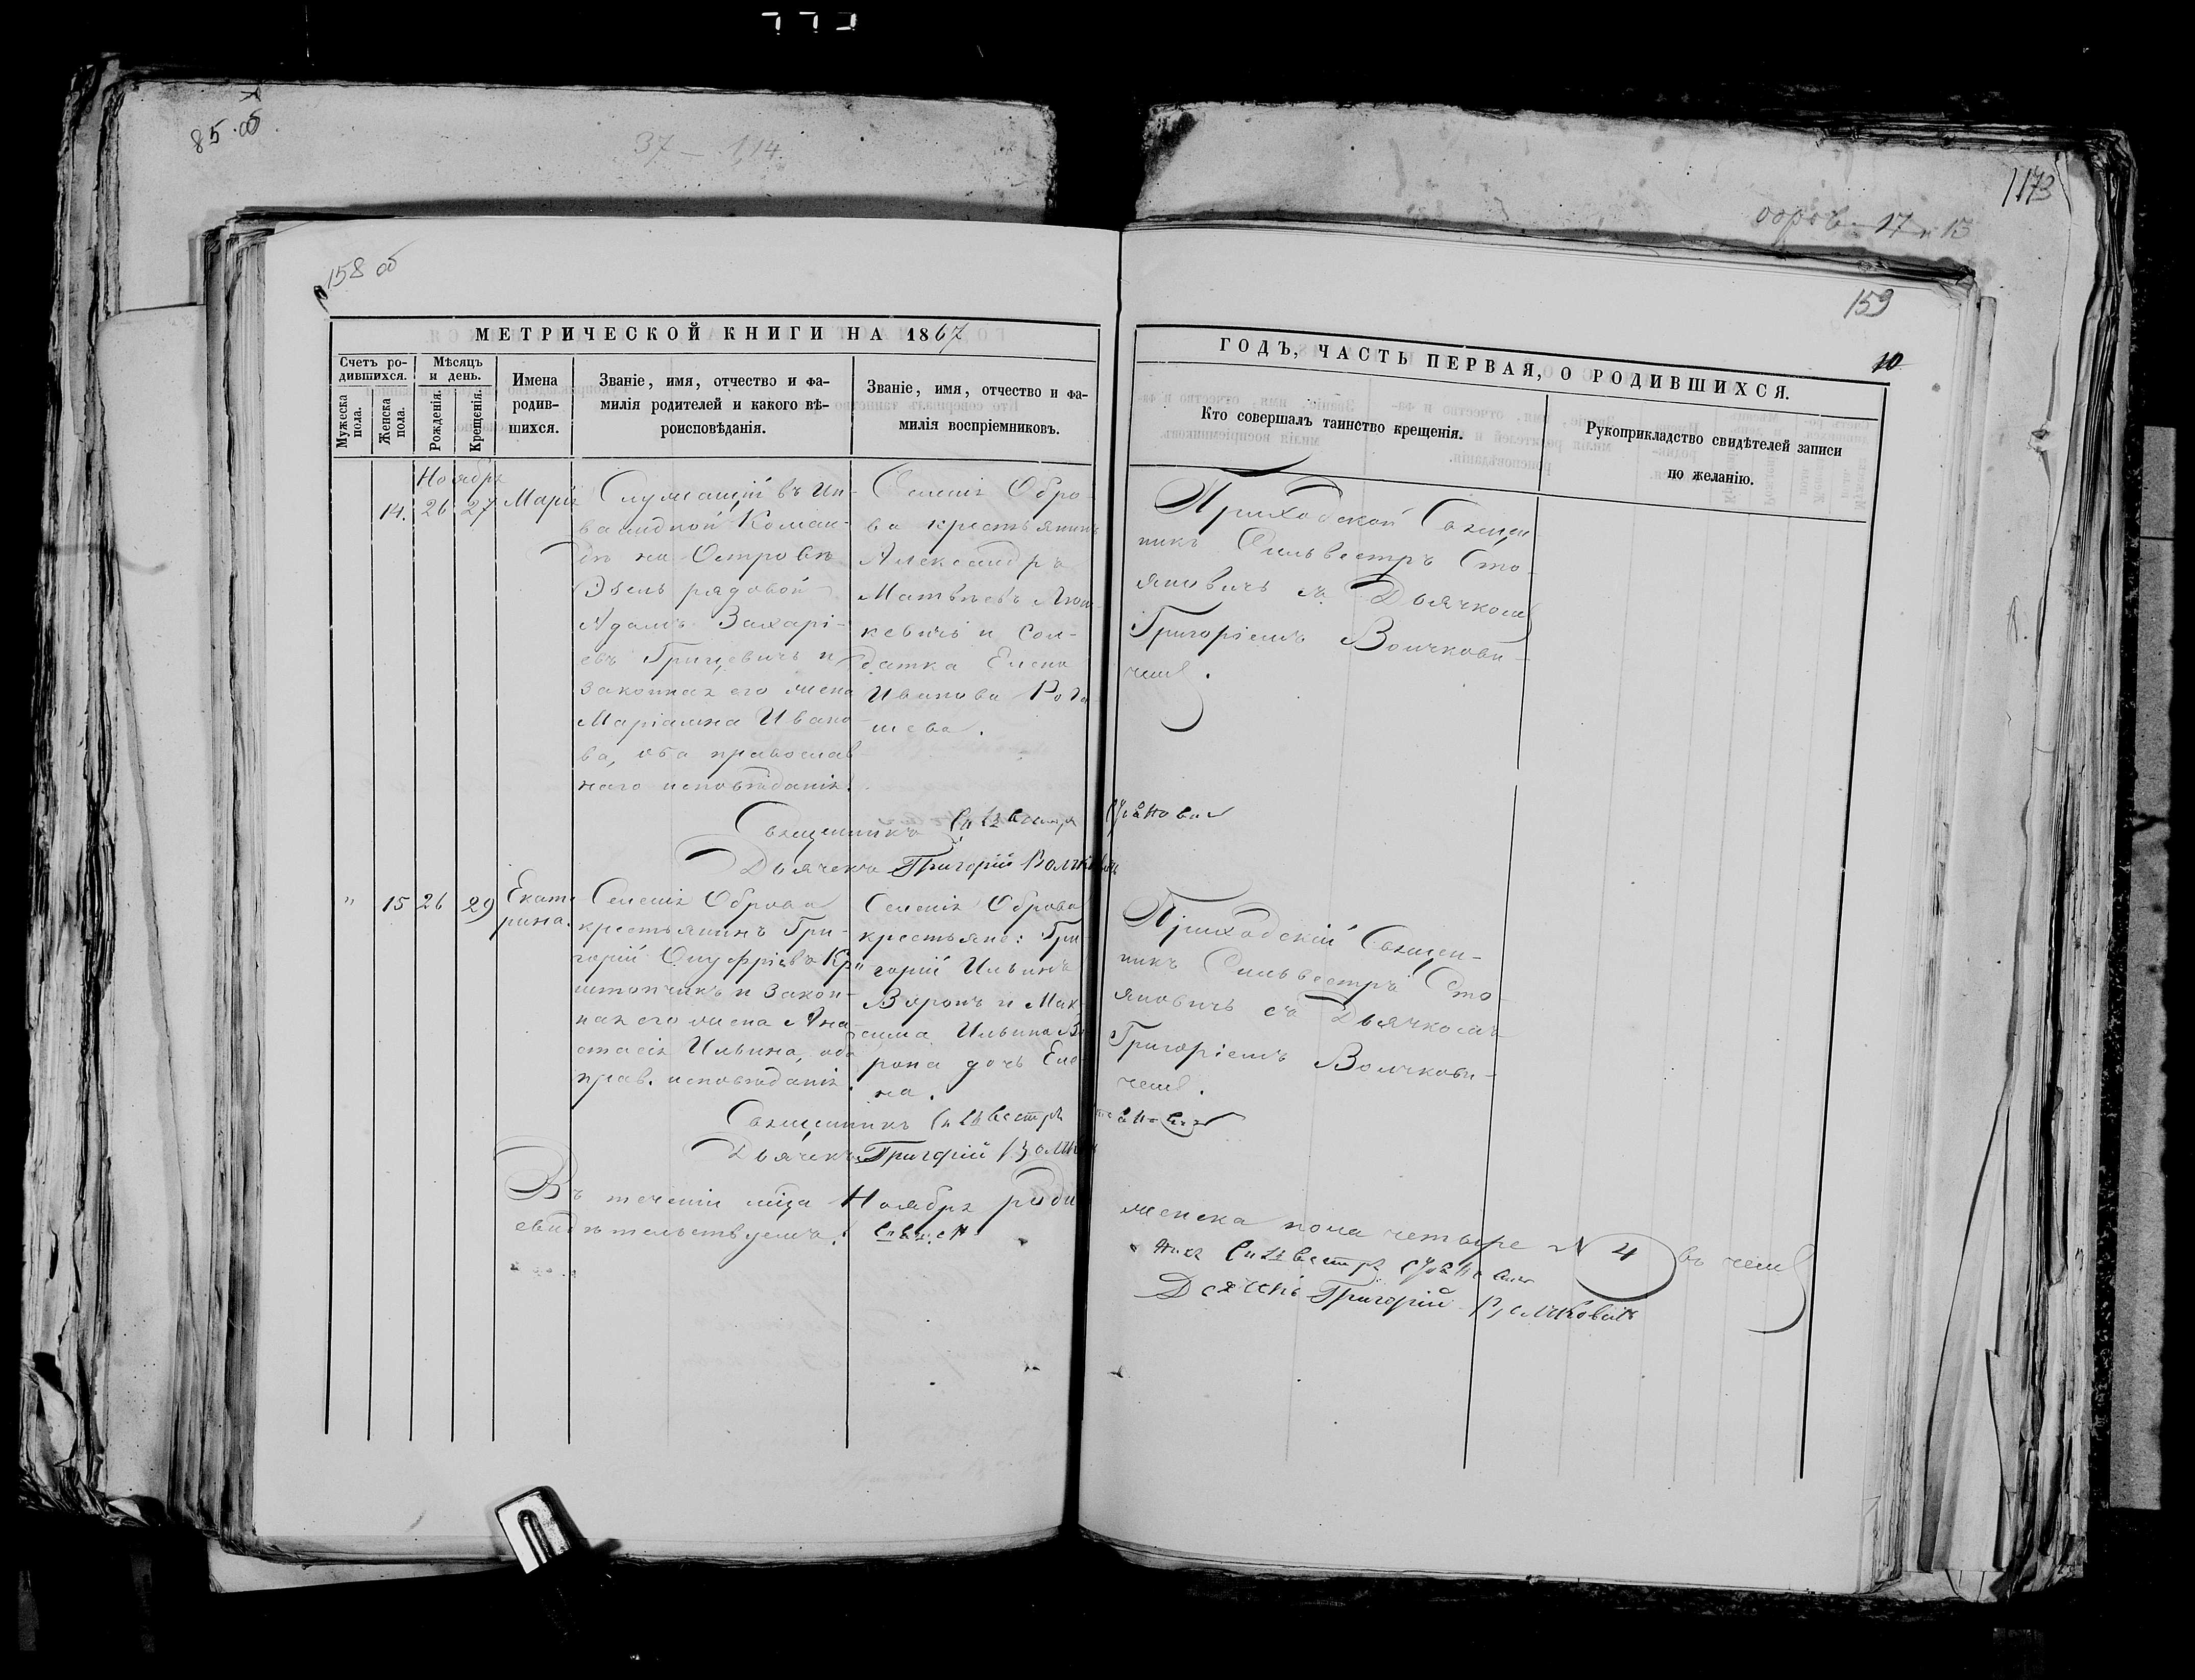 85 об
37 — 114.
1173
17 и 13
158 об
159
10
МЕТРИЧЕСКОЙ КНИГИ НА 1867
ГОДЪ, ЧАСТЬ ПЕРВАЯ, О РОДИВШИХСЯ.
Счетъ ро-
дившихся.
Мужеска
пола.
Женска
пола.
Мѣсяцъ
и день.
Рожденія.
Крещенія.
Имена
родив-
шихся.
Званіе, имя, отчество и фа-
милія родителей и какого вѣ-
роисповѣданія.
Званіе, имя, отчество и фа-
милія воспріемниковъ.
Кто совершалъ таинство крещенія.
Рукоприкладство свидѣтелей записи
по желанію.
Ноября
14. 26 27 Марія
Служащій въ Ин-
валидной Коман-
дѣ на Островѣ
Эзель рядовой
Адамъ Захарі-
евъ Грицевичъ и
законная его жена
Маріанна Ивано
ва, оба православ
наго исповѣданія.
Селенія Обро-
ва крестьянинъ
Александръ
Матвѣевъ
кевичъ и Сол-
датка Елена
Иванова Рога
шева.
Приходской Священ
никъ Сильвестръ Сто-
яновичъ съ Дьячкомъ
Григоріемъ Волчкови-
чемъ.
Священникъ Сильвестръ Стояновичъ
Дьячекъ Григорій Волчковичъ
" 15 26 29 Екате
рина.
Селенія Оброва
крестьянинъ Гри-
горій Онуфріевъ Кр
штопчикъ и закон-
ная его жена Ана-
стасія Ильина, оба
прав. исповѣданія.
Селенія Оброва
крестьяне: Гри-
горій Ильинъ
Воронъ и Мак-
сима Ильина Во
рона дочь Еле-
на.
Приходскій Священ-
никъ Сильвестръ Сто-
яновичъ съ Дьячкомъ
Григоріемъ Волчкови-
чемъ.
Священникъ Сильвестръ Стояновичъ
Дьячекъ Григорій Волчк
Въ теченіи мѣца Ноября роди женска пола четыре N 4 въ чемъ
свидѣтельствуемъ: Священникъ Сильвестръ Стояновичъ
Дьячекъ Григорій Волчковичъ